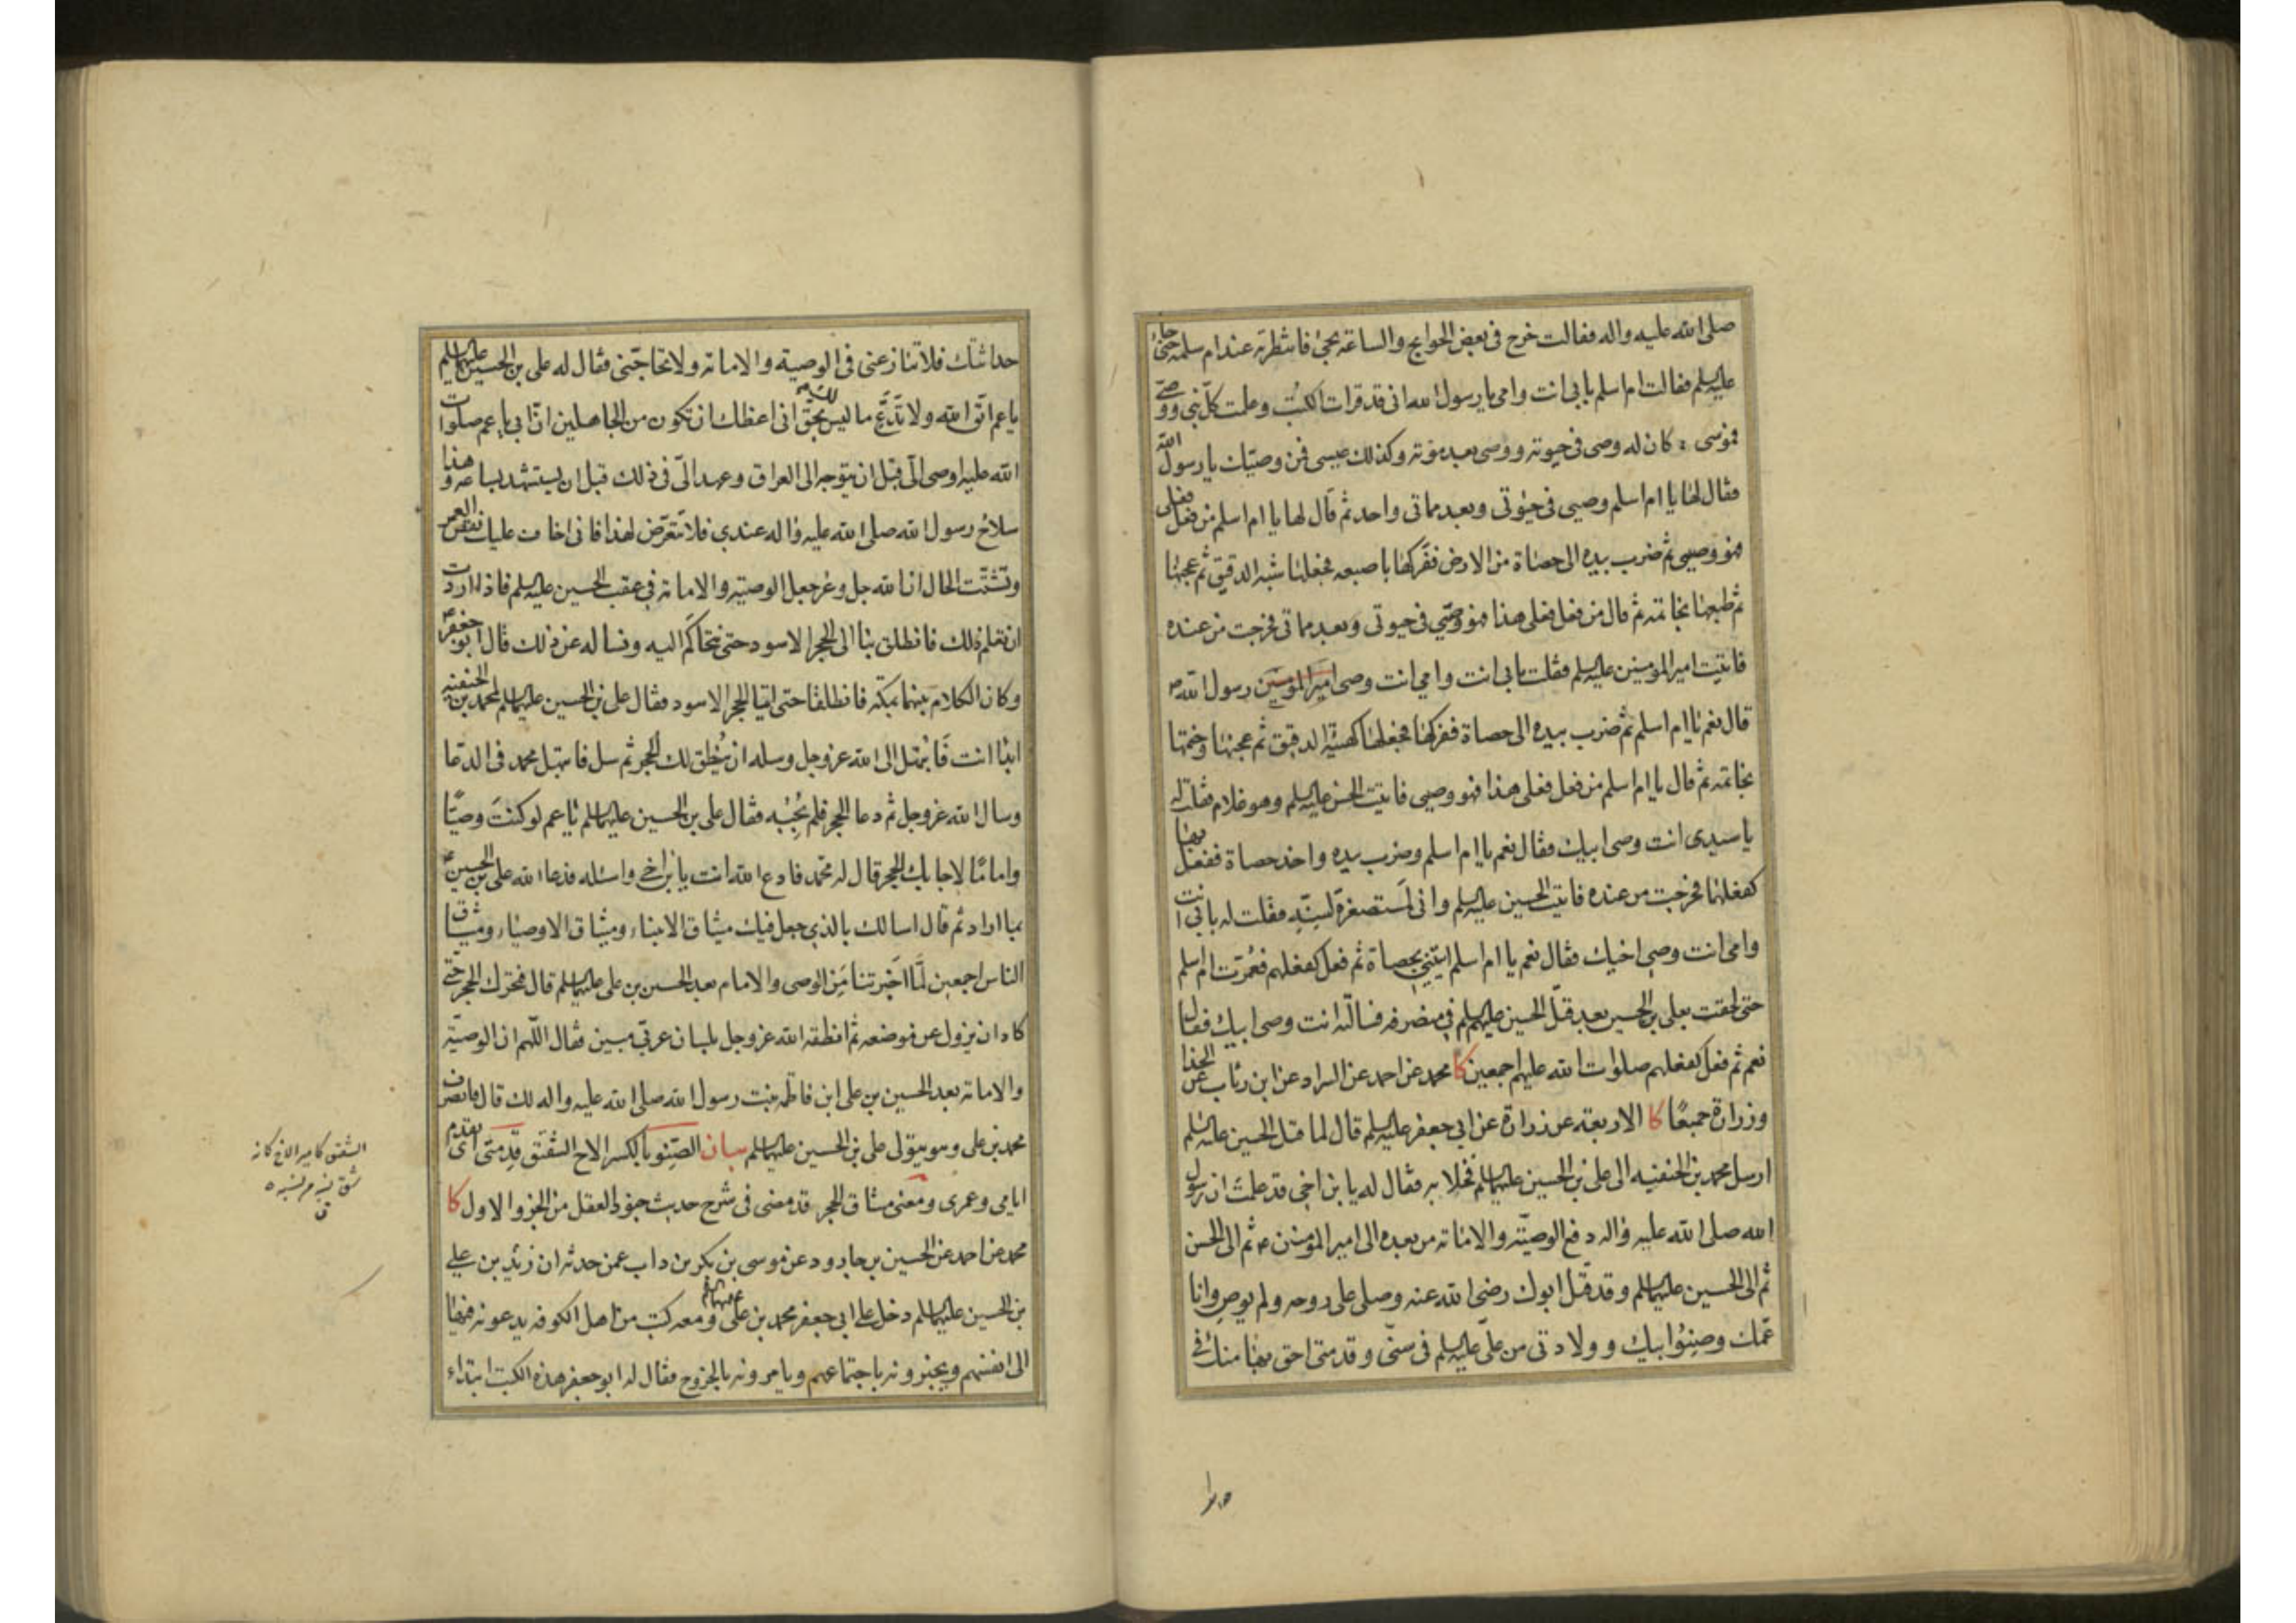 صلى الله عليه واله فقالت خرج فى بعض الحوايج والساعة يجئ فانتظرته عند ام سلمه حتى جاء
عليه السلم فقالت ام اسلم بابى انت وامى يا رسول الله انى قد قرات الكتب وعلمت كل نبى ووصى
فموسى كان له وصى فى حيوته ووصى بعد موته وكذلك عيسى فمن وصيك يا رسول الله
فقال لها يا ام اسلم وصيى فى حيوتى وبعد مماتى واحد ثم قال لها يا ام اسلم من فعل فعلى
فهو وصيى ثم ضرب بيده الى حصاة من الارض ففركها باصبعه فجعلها شبه الدقيق ثم عجنها
ثم طبعها بخاتمه ثم قال من فعل فعلى هذا فهو وصيى فى حيوتى وبعد مماتى فخرجت من عنده
فاتيت امير المومنين عليه السلم فقلت بابى انت وامى انت وصى امير المومنين رسول الله ص
قال نعم يا ام اسلم ثم ضرب بيده الى حصاة ففركها فجعلها كهيئة الدقيق ثم عجنها وختمها
بخاتمه ثم قال يا ام اسلم من فعل فعلى هذا فهو وصيى فاتيت الحسن عليه السلم وهو غلام فقلت له
يا سيدى انت وصى ابيك فقال نعم يا ام اسلم وضرب بيده واخذ حصاة ففعل بها
كفعلهما فخرجت من عنده فاتيت الحسين عليه السلم وانى لمستصغرة لسنه فقلت له بابى انت
وامى انت وصى اخيك فقال نعم يا ام اسلم ايتينى بحصاة ثم فعل كفعلهم فعمرت ام اسلم
حتى لحقت بعلى بن الحسين بعد قتل الحسين عليهم السلم فى منصرفه فسالته انت وصى ابيك فقال
نعم ثم فعل كفعلهم صلوات الله عليهم اجمعين كا محمد عن احمد عن السراد عن ابن رئاب عن الحذا
وزرارة جميعًا كا الاربعة عن زرارة عن ابى جعفر عليه السلم قال لما قتل الحسين عليه السلم
ارسل محمد بن الحنفيه الى على بن الحسين عليهما السلم فخلا به فقال له يا بن اخى قد علمت ان رسول
الله صلى الله عليه واله دفع الوصيّة والامامة من بعده الى امير المومنين ع ثم الى الحسن
ثم الى الحسين عليهما السلم وقد قتل ابوك رضى الله عنه وصلى على روحه ولم يوص وانا
عمك وصنوا ابيك وولادتى من علىّ عليه السلم فى سنى وقدمتى احق بها منك فى
حداثتك فلا تنازعنى فى الوصية والامامة ولا تحاجّنى فقال له على بن الحسين عليهما السلم
يا عم اتق الله ولا تدّع ما ليس لك بحق انى اعظك ان تكون من الجاهلين ان ابى يا عم صلوات
الله عليه اوصى الىّ قبل ان يتوجه الى العراق وعهد الىّ فى ذلك قبل ان يستشهد بساعة وهذا
سلاح رسول الله صلى الله عليه واله عندى فلا تتعرّض لهذا فانى اخاف عليك نقص العمر
وتشتّت الحال ان الله جل وعز جعل الوصية والامامة فى عقب الحسين عليه السلم فاذا اردت
ان تعلم ذلك فانطلق بنا الى الحجر الاسود حتى نتحاكم اليه ونساله عن ذلك قال ابو جعفر ع
وكان الكلام بينهما بمكّه فانطلقا حتى اتيا الحجر الاسود فقال على بن الحسين عليهما السلم لمحمد بن الحنفيه
ابدا انت فابتهل الى الله عز وجل وسله ان ينطق لك الحجر ثم سل فابتهل محمد فى الدعا
وسال الله عز وجل ثم دعا الحجر فلم يجبه فقال على بن الحسين عليهما السلم يا عم لو كنت وصيّا
وامامًا لاجابك الحجر قال له محمد فادع الله انت يا بن اخى واسئله فدعا الله على بن الحسين ع
بما اراد ثم قال اسالك بالذى جعل فيك ميثاق الانبياء وميثاق الاوصياء وميثاق
الناس اجمعين لمّا اخبرتنا من الوصى والامام بعد الحسين بن على عليهما السلم قال فتحرك الحجر حتى
كاد ان يزول عن موضعه ثم انطقه الله عز وجل بلسان عربى مبين فقال اللّهم ان الوصيّة
والامامة بعد الحسين بن على ابن فاطمة بنت رسول الله صلى الله عليه واله لك قال فانصرف
محمد بن على وهو يتولى على بن الحسين عليهما السلم بيان الصّنو بالكسر الاخ الشقيق قدمتى اى تقدم
ايامى وعمرى ومعنى ميثاق الحجر قد مضى فى شرح حديث جنود العقل من الجزو الاول كا
محمد عن احمد عن الحسين بن جارود عن موسى بن بكر بن داب عمن حدثه ان زيد بن على
بن الحسين عليهما السلم دخل على ابى جعفر محمد بن على عليهما السلم ومعه كتب من اهل الكوفه يدعونه فيها
الى انفسهم ويخبرونه باجتماعهم ويامرونه بالخروج فقال له ابو جعفر هذه الكتب ابتداء
الشقيق كامير الاخ كانه
شق نسبه من نسبه
ق